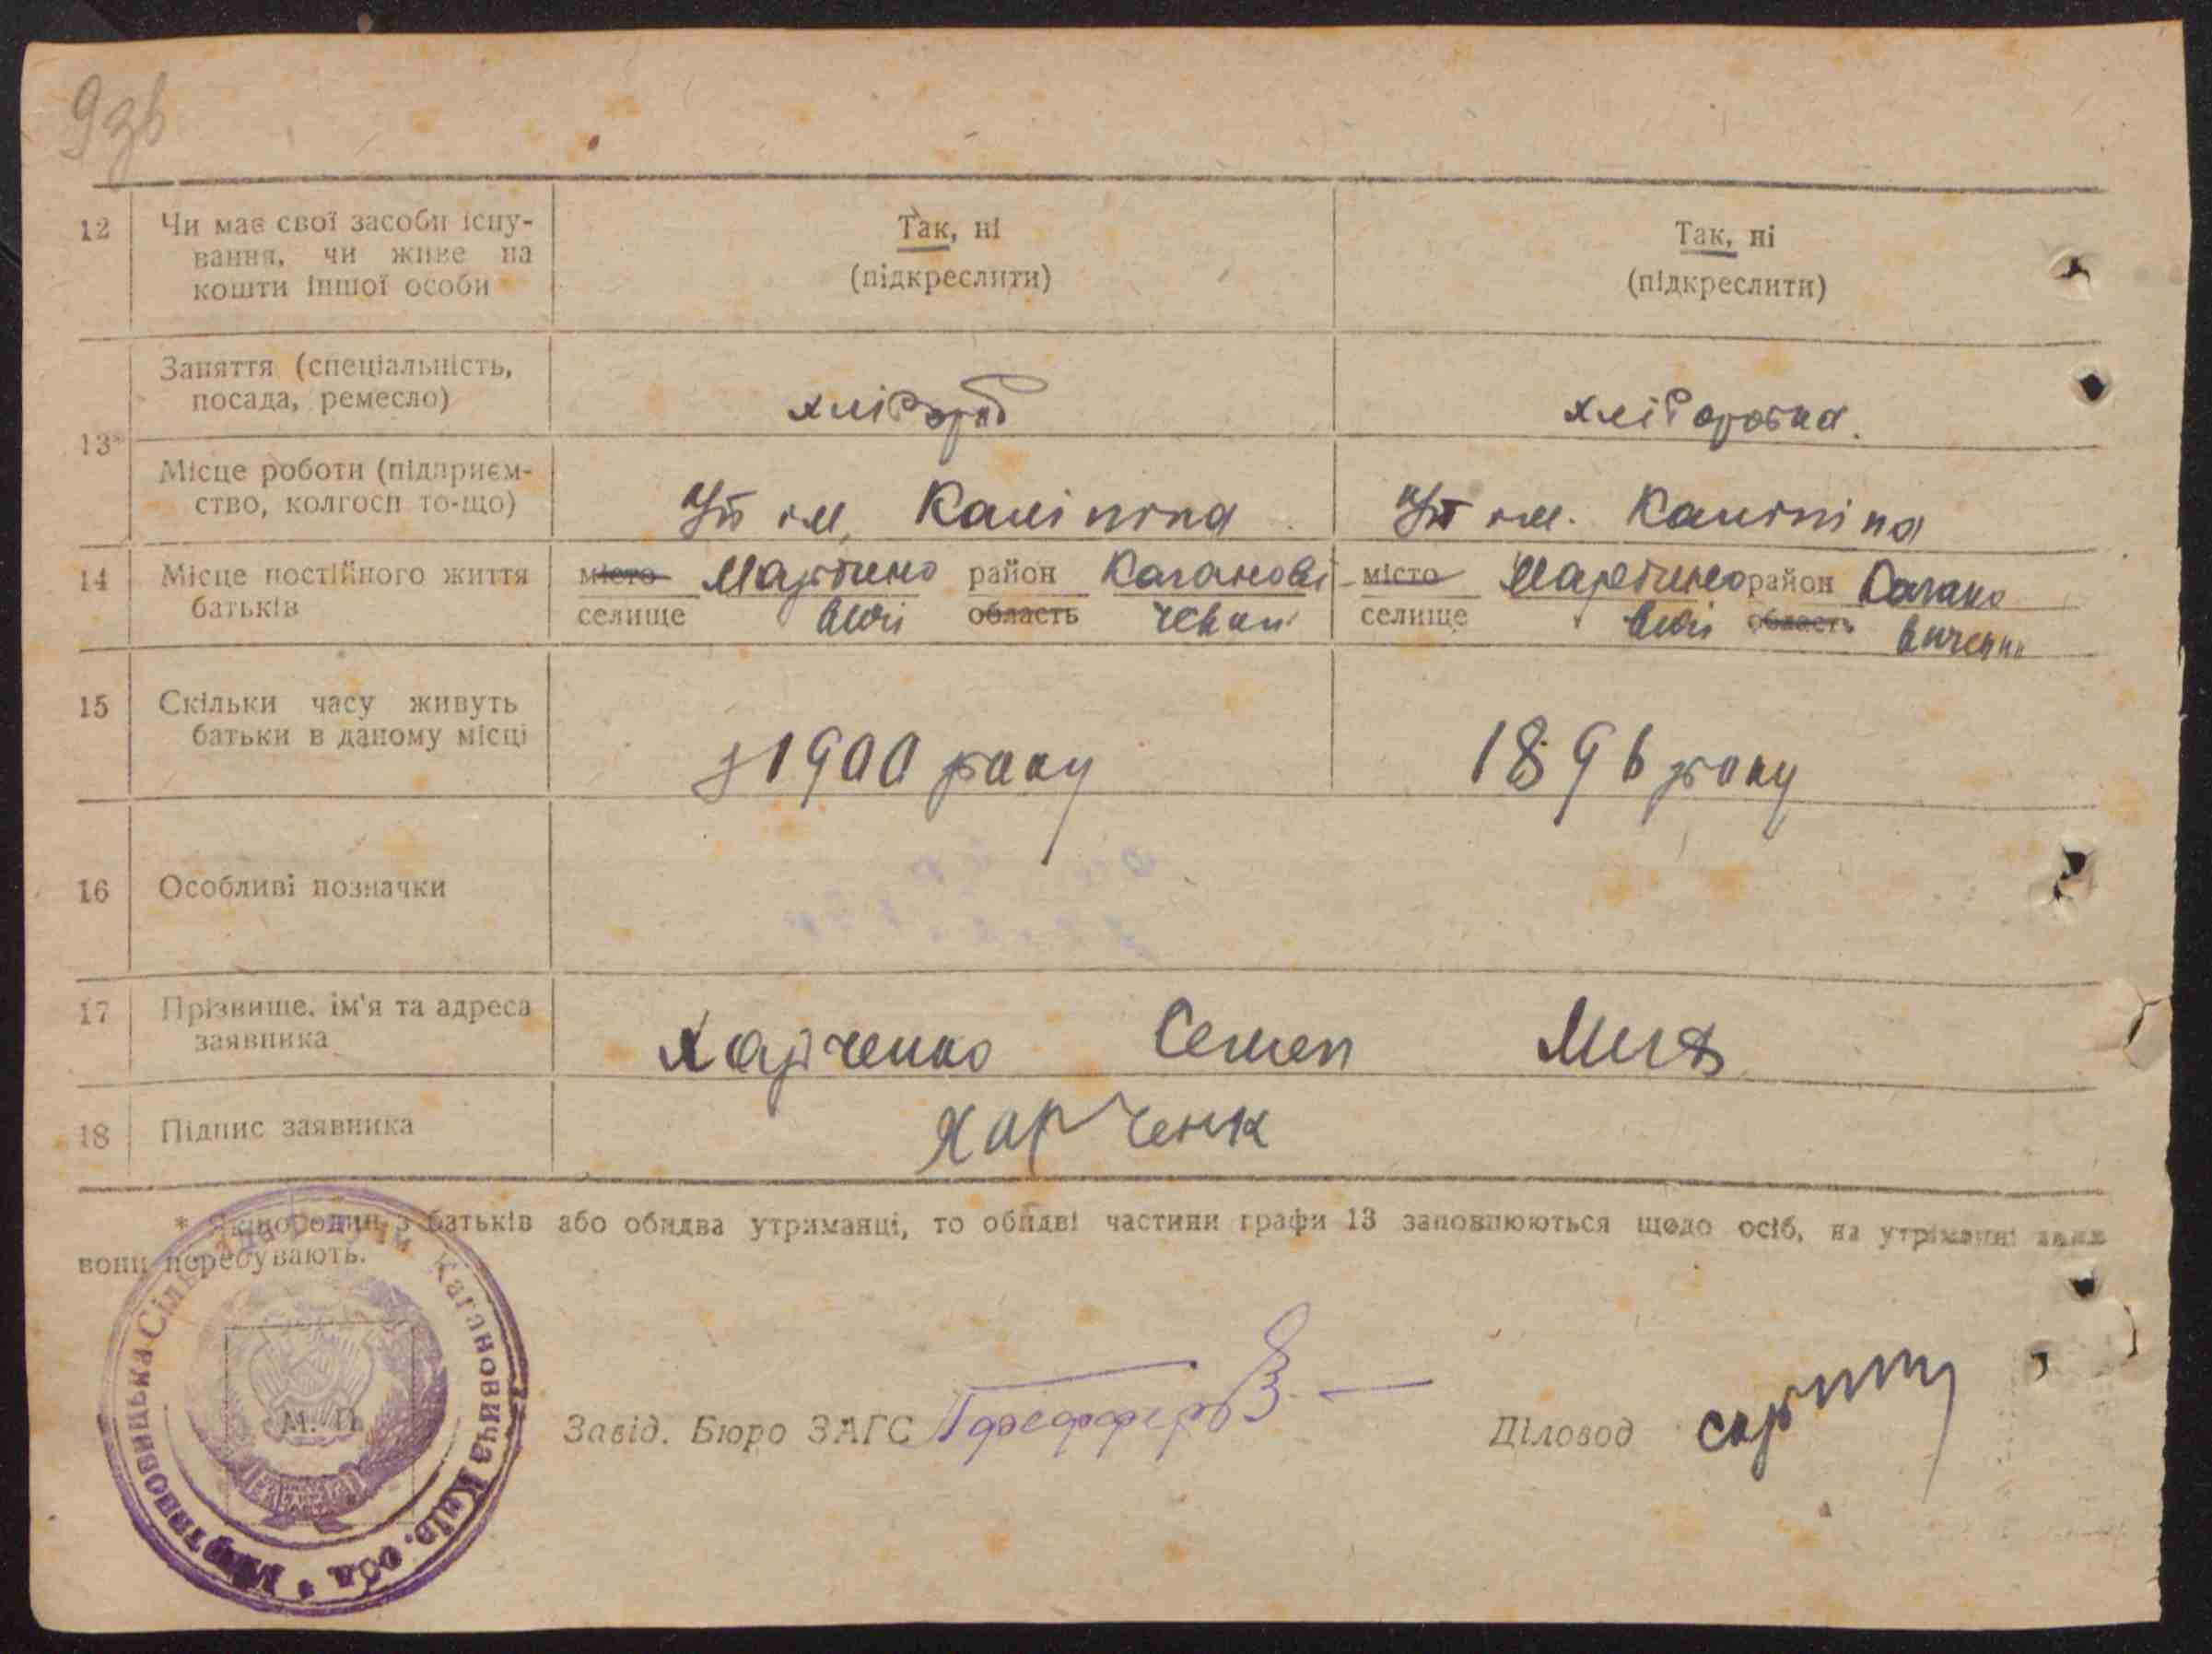 93б
12 Чи має свої засоби існу-
вання, чи живе на
кошти іншої особи
Так, ні
(підкреслити)
Так, ні
(підкреслити)
13* Заняття (спеціальність,
посада, ремесло)
хлібороб
хліборобка.
Місце роботи (підприєм-
ство, колгосп то-що)
ім. Калініна
ім. Калініна
14 Місце постійного життя
батьків
місто Мартино район Каганові
селище вичі область
місто Мартино район Кагано
селище вичі область
15 Скільки часу живуть
батьки в даному місці
з 1900 року
1896 року
16 Особливі позначки
17 Прізвище, ім'я та адреса
заявника
Харченко Семен
18 Підпис заявника
Харченк
* Якщо один з батьків або обидва утриманці, то обидві частини графи 13 заповнюються щодо осіб, на утриманні яких
вони перебувають.
Мартиновицька Сіль Кагановича Київ. обл.
М. П.
Завід. Бюро ЗАГС
Діловод